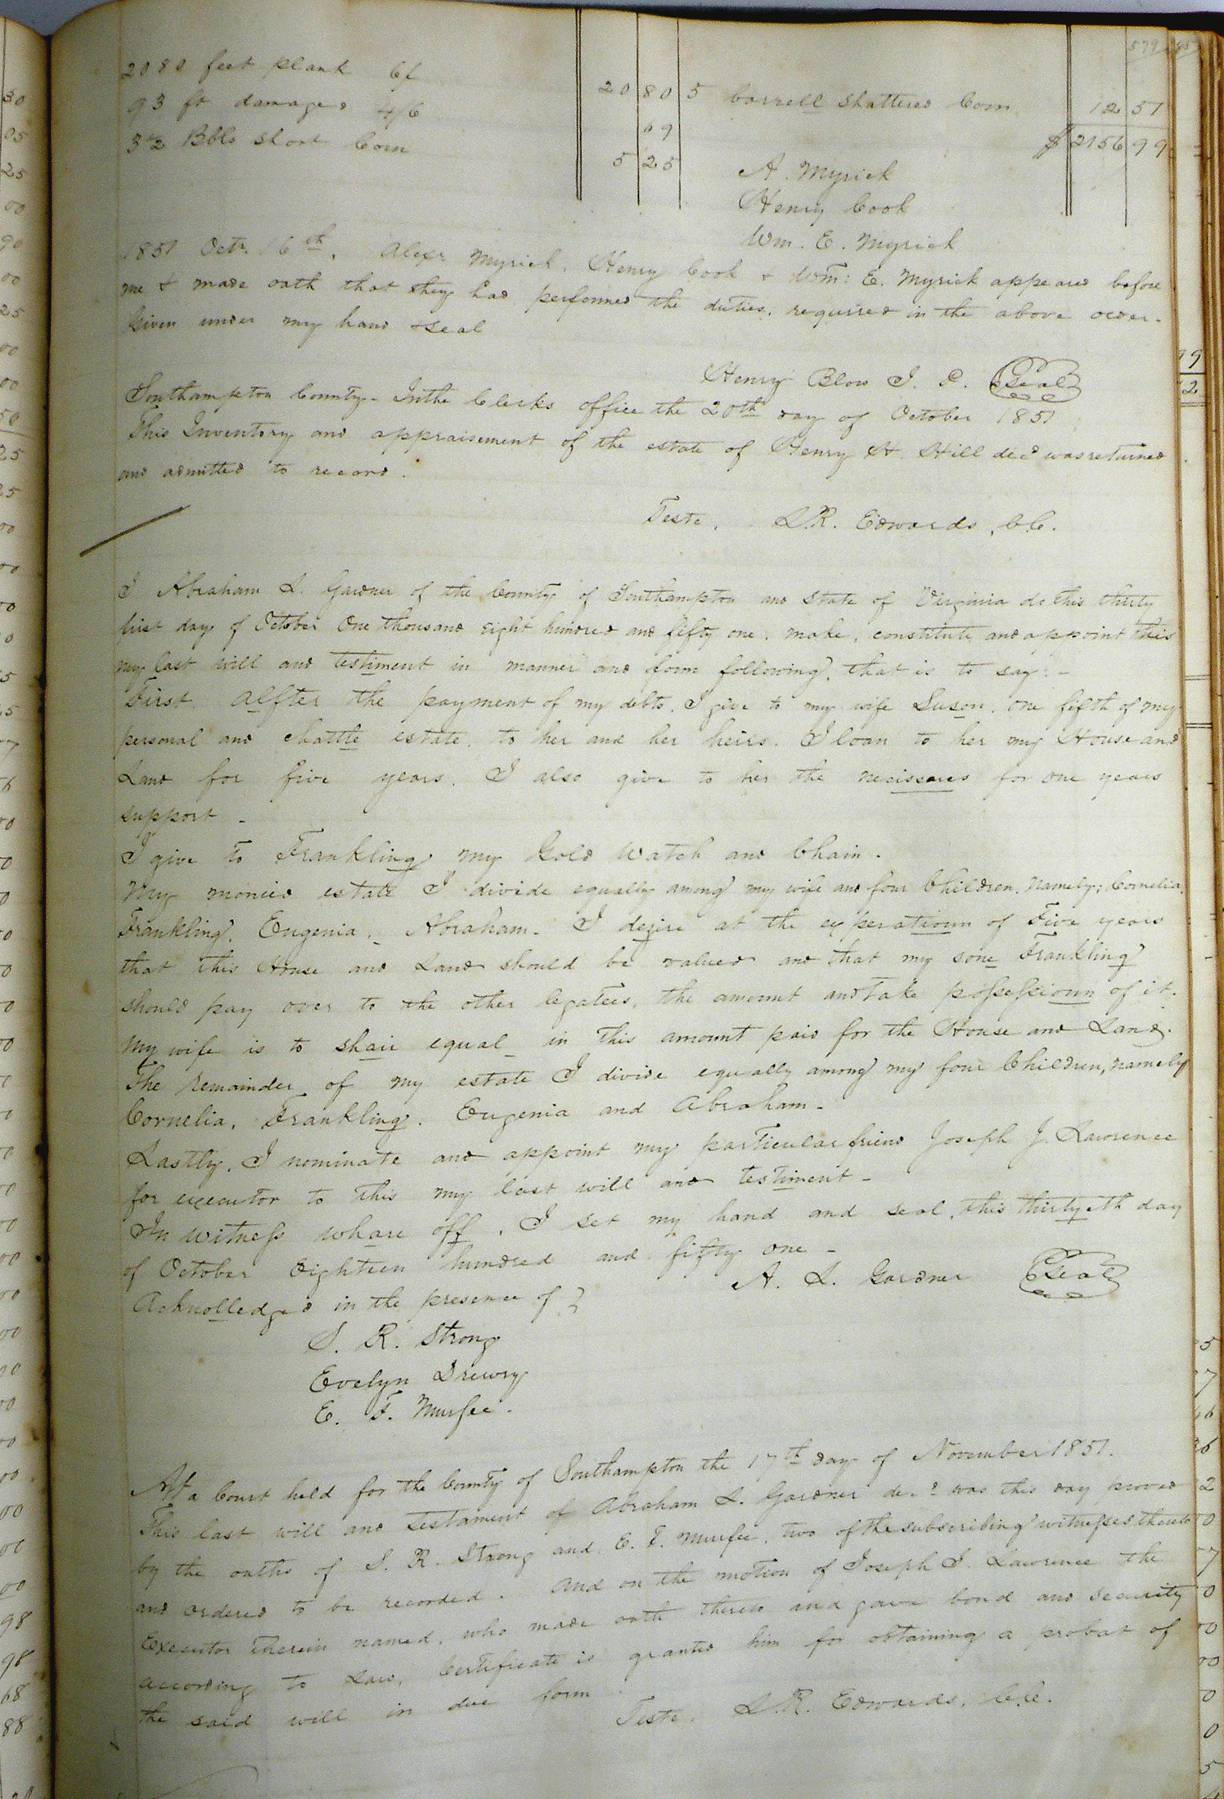 2080 feet plank 6/
93 ft damaged 4/6
3 1/2 Bbls Short Corn
20 80 5
09
5 25
barrell Shattered Corn 12 51
$ 2156 99
A. Myrick
Henry Cook
Wm. E. Myrick
1851 Octr. 16th. Alexr Myrick, Henry Cook & Wm: E. Myrick appeared before
me & made oath that they had performed the duties, required in the above order.
Given under my hand & seal
Henry Blow J. P. Seal
Southampton County - In the Clerks office the 20th day of October 1851
This Inventory and appraisement of the estate of Henry H. Hill decd was returned
and admitted to record.
Teste, L.R. Edwards, C.C.
I Abraham L. Gardner of the County of Southampton and State of Virginia do this thirty
first day of October One thousand eight hundred and fifty one, make, constitute and appoint this
my last will and testiment in manner and form following, that is to say: -
First, Alfter the payment of my debts, I give to my wife Suson, one fifth of my
personal and chattle estate, to her and her heirs. I loan to her my House and
Land for five years. I also give to her the necissaries for one years
support -
I give to Frankling my Gold Watch and Chain.
My monied estate I divide equally among my wife and four Children, Namely; Cornelia,
Frankling, Eugenia, Abraham. I dezire at the experatioun of Five years
that this House and Land should be valued and that my sone Frankling
should pay over to the other legatees, the amount and take possessioun of it.
My wife is to shair equal in this amount paid for the House and Land.
The remainder of my estate I divide equally among my four Children, namely
Cornelia, Frankling, Eugenia and Abraham -
Lastly, I nominate and appoint my particular friend Joseph J. Lawrence
for executor to this my last will and testiment -
In witness whare off, I set my hand and seal, this thirtyeth day
of October Eighteen hundred and fifty one -
A. L. Gardner Seal
Acknolledged in the presence of
S. R. Strong
Evelyn Drewry
E. F. Murfee.
At a Court held for the County of Southampton the 17th day of November 1851.
This last will and testament of Abraham L. Gardner decd was this day proved
by the oaths of S. R. Strong and E. F. Murfee, two of the subscribing witnesses thereto
and ordered to be recorded. And on the motion of Joseph J. Lawrence the
Executor therein named, who made oath thereto and gave bond and security
according to Law, Certificate is granted him for obtaining a probat of
the said will in due form
Teste. L.R. Edwards, C.C.